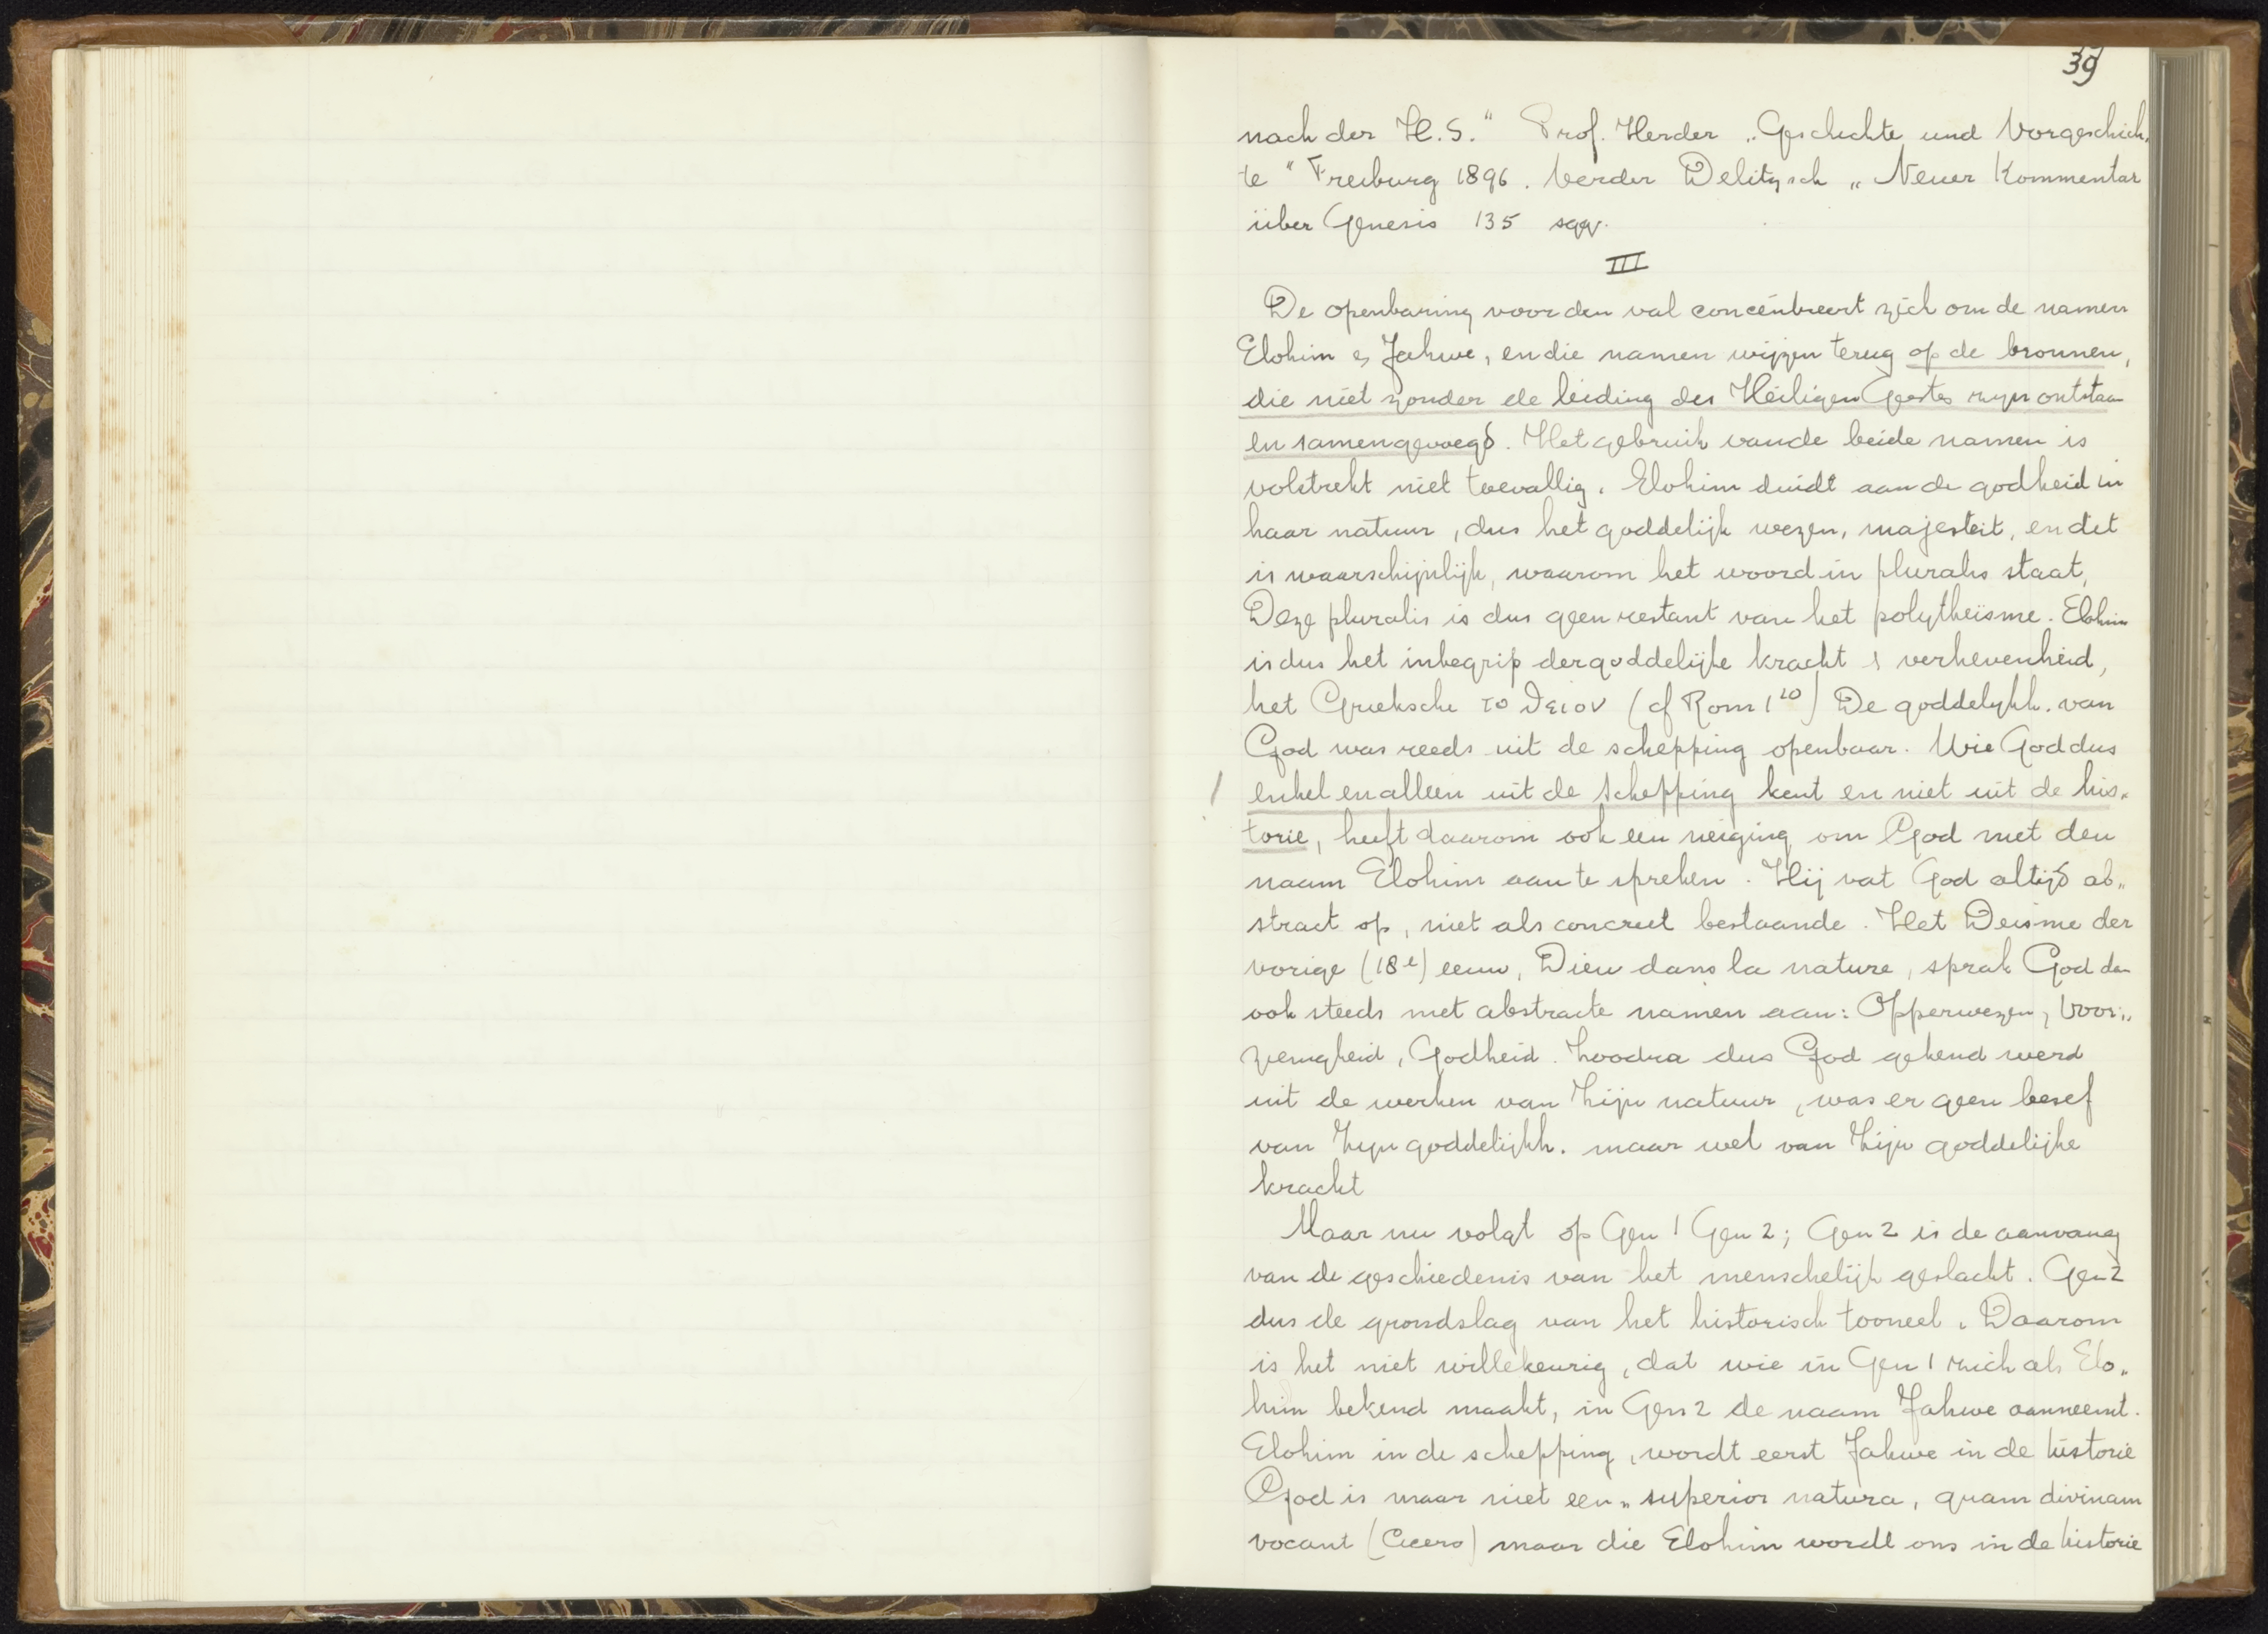 39
nach der H.S." Prof. Herder „Geschichte und Vorgeschich„
te" Freiburg 1896. Verder Delitzsch „Neuer Kommentar
über Genesis 135 sqq.
III
De openbaring voor den val concentreert zich om de namen
Elohim en Jahwe, en die namen wijzen terug op de bronnen,
die niet zonder de leiding des Heiligen Geestes zijn ontstaan
en samengevoegd. Het gebruik van de beide namen is
volstrekt niet toevallig. Elohim duidt aan de godheid in
haar natuur, dus het goddelijk wezen, majesteit, en dit
is waarschijnlijk, waarom het woord in pluralis staat,
Deze pluralis is dus geen restant van het polytheïsme. Elohim
is dus het inbegrip der goddelijke kracht & verhevenheid,
het Grieksche το θειον (cf Rom 1 20) De goddelijkh. van
God was reeds uit de schepping openbaar. Wie God dus
enkel en alleen uit de schepping kent en niet uit de his„
torie, heeft daarom ook een neiging om God met den
naam Elohim aan te spreken. Hij vat God altijd ab„
stract op, niet als concreet bestaande. Het Deisme der
vorige (18e) eeuw, Dieu dans la nature, sprak God dan
ook steeds met abstracte namen aan: Opperwezen, Voor„
zienigheid, Godheid. Zoodra dus God gekend werd
uit de werken van Zijn natuur, was er geen besef
van Zijn goddelijkh. maar wel van Zijn goddelijke
kracht
Maar nu volgt op Gen 1 Gen 2; Gen 2 is de aanvang
van de geschiedenis van het menschelijk geslacht. Gen 2
dus de grondslag van het historisch tooneel. Daarom
is het niet willekeurig, dat wie in Gen 1 zich als Elo„
him bekend maakt, in Gen 2 de naam Jahwe aanneemt.
Elohim in de schepping, wordt eerst Jahwe in de historie
God is maar niet een „superior natura, quam divinam
vocant (Cicero) maar die Elohim wordt ons in de historie